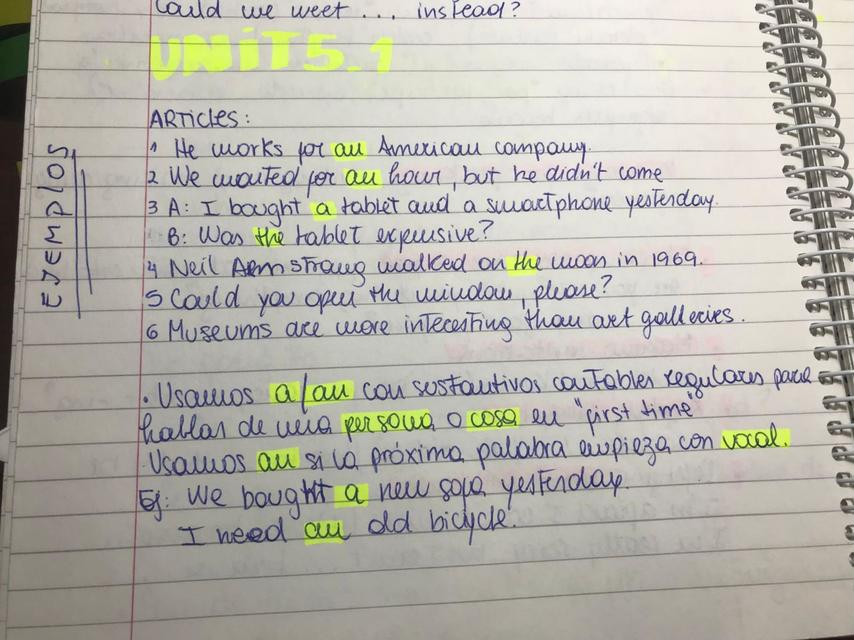 Could we meet ... instead?
UNIT 5.1
EJEMPLOS
ARTicles:
1 He works for an American company.
2 We waited for an hour, but he didn't come
3 A: I bought a tablet and a smartphone yesterday.
B: Was the tablet expensive?
4 Neil Armstrong walked on the moon in 1969.
5 Could you open the window, please?
6 Museums are more interesting than art galleries.
. Usamos a/an con sustantivos contables regulares para
hablar de una persona o cosa en "first time"
. Usamos an si la próxima palabra empieza con vocal.
Ej: We bought a new sofa yesterday.
I need an old bicycle.